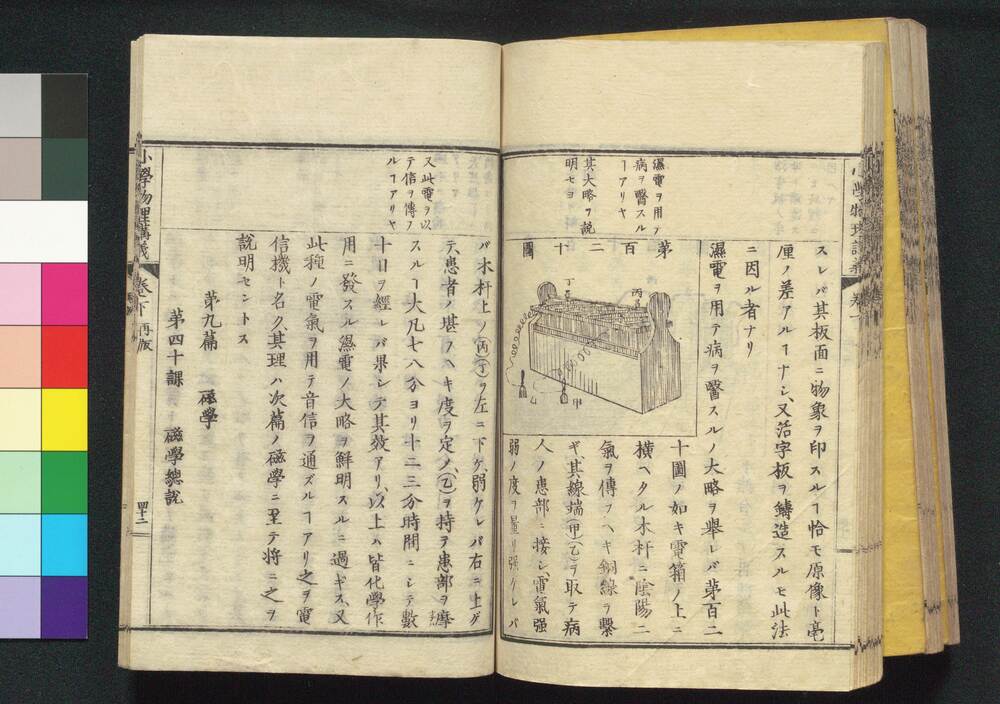 濕電ヲ用テ
病ヲ醫スル
ヿアリヤ
其大略ヲ説
明セヨ
スレバ其板面ニ物象ヲ印スルヿ恰モ原像ト毫
厘ノ差アルヿナシ、又活字板ヲ鑄造スルモ此法
ニ因ル者ナリ
濕電ヲ用テ病ヲ醫スルノ大略ヲ舉レバ第百二
十圖ノ如キ電箱ノ上ニ
横ヘタル木杆ニ陰陽二
氣ヲ傳フヘキ銅線ヲ繫
ギ、其線端(甲)(乙)ヲ取テ病
人ノ患部ニ接シ、電氣强
弱ノ度ヲ量リ强ケレバ
第百二十圖
丙
丁
甲
乙
又此電ヲ以
テ信ヲ傳フ
ルヿアリヤ
バ木杆上ノ(丙)(丁)ヲ左ニ下ゲ、弱ケレバ右ニ上ゲ
テ、患者ノ堪フヘキ度ヲ定ノ、(乙)ヲ持ヲ患部ヲ摩
スルヿ大凡七八分ヨリ十二三分時間ニシテ數
十日ヲ經レバ果シテ其效アリ、以上ハ皆化學作
用ニ發スル濕電ノ大略ヲ鮮明スルニ過ギス、又
此種ノ電氣ヲ用テ音信ヲ通ズルヿアリ之ヲ電
信機ト名ク、其理ハ次篇ノ磁學ニ至テ將ニ之ヲ
說明セントス
第九篇 磁學
第四十課 磁學總說
小學物理講義 卷下 再版
四十二